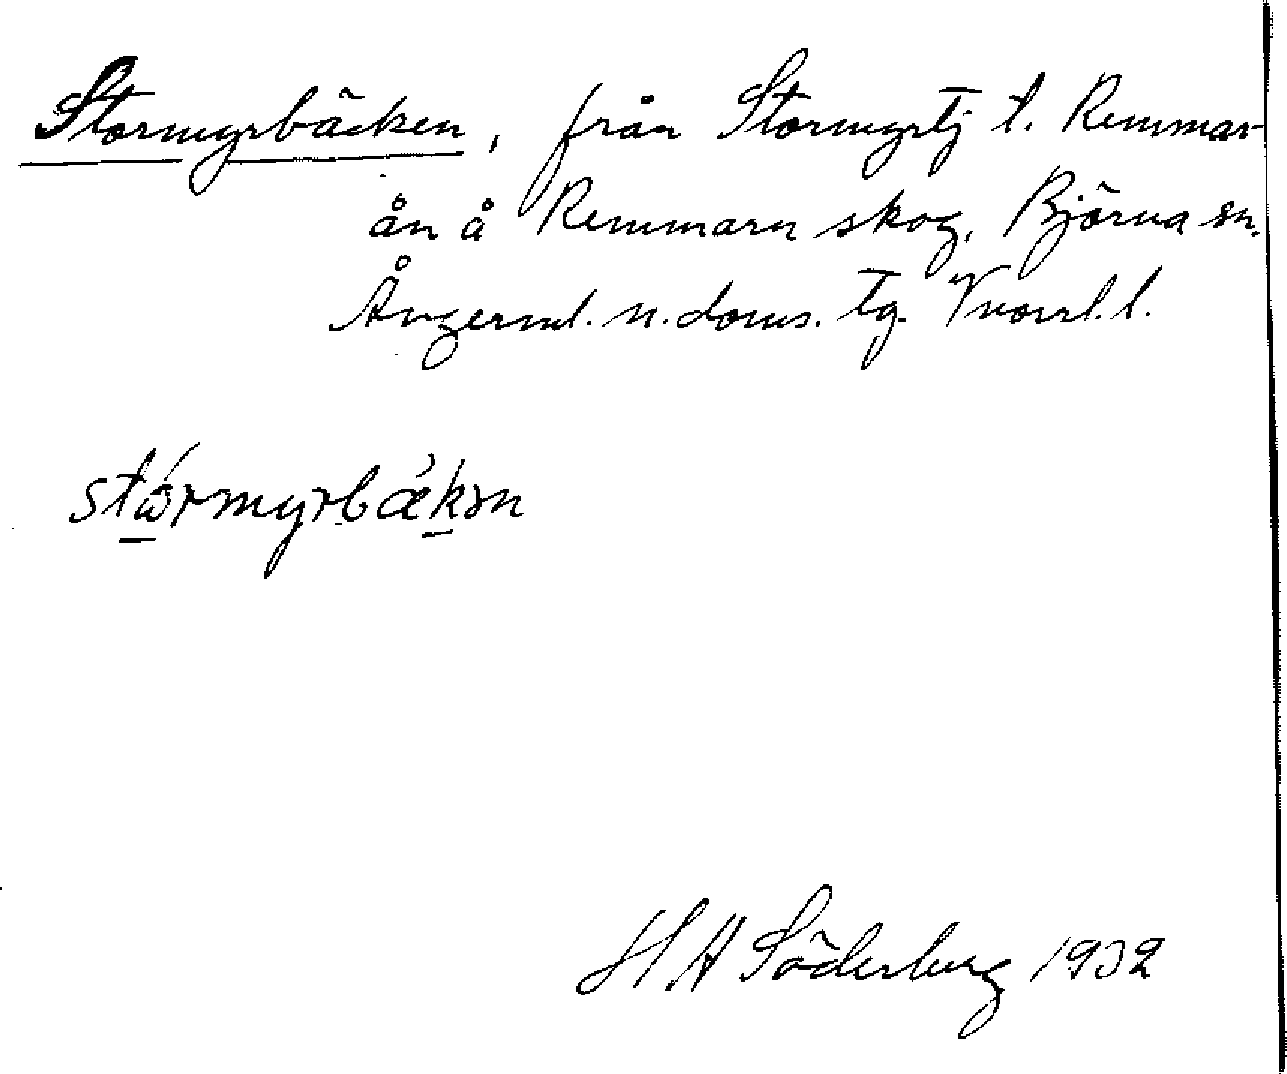 Stormyrbäcken, från Stormyrtj t. Remmar-
ån å Remmarn skog, Björna sn.
Ångerml. n. doms. tg. Vnorrl. l.
stώrmyrbǽkən
H A Söderberg 1932